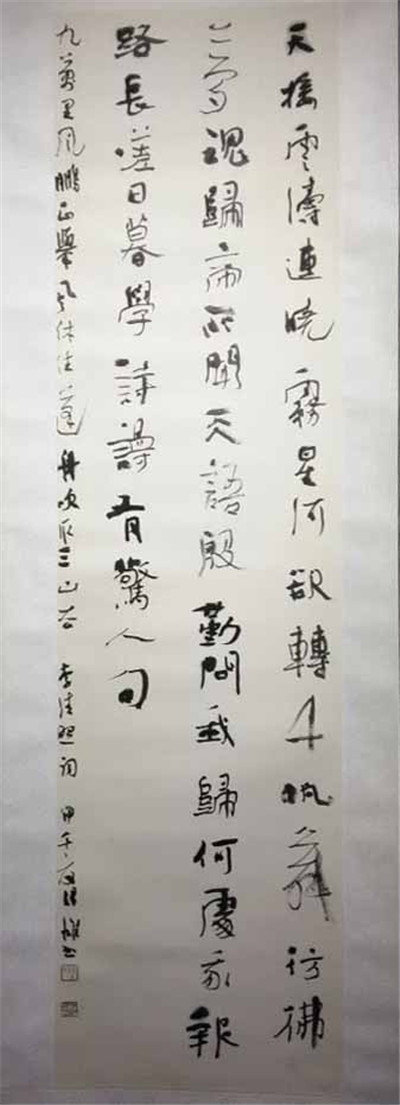 天接雲濤連曉霧星河欲轉千帆舞彷彿
夢魂歸帝所聞天語殷勤問我歸何處我報
路長嗟日暮學詩謾有驚人句
九萬里風鵬正舉風休住蓬舟吹取三山去 李清照詞 甲午